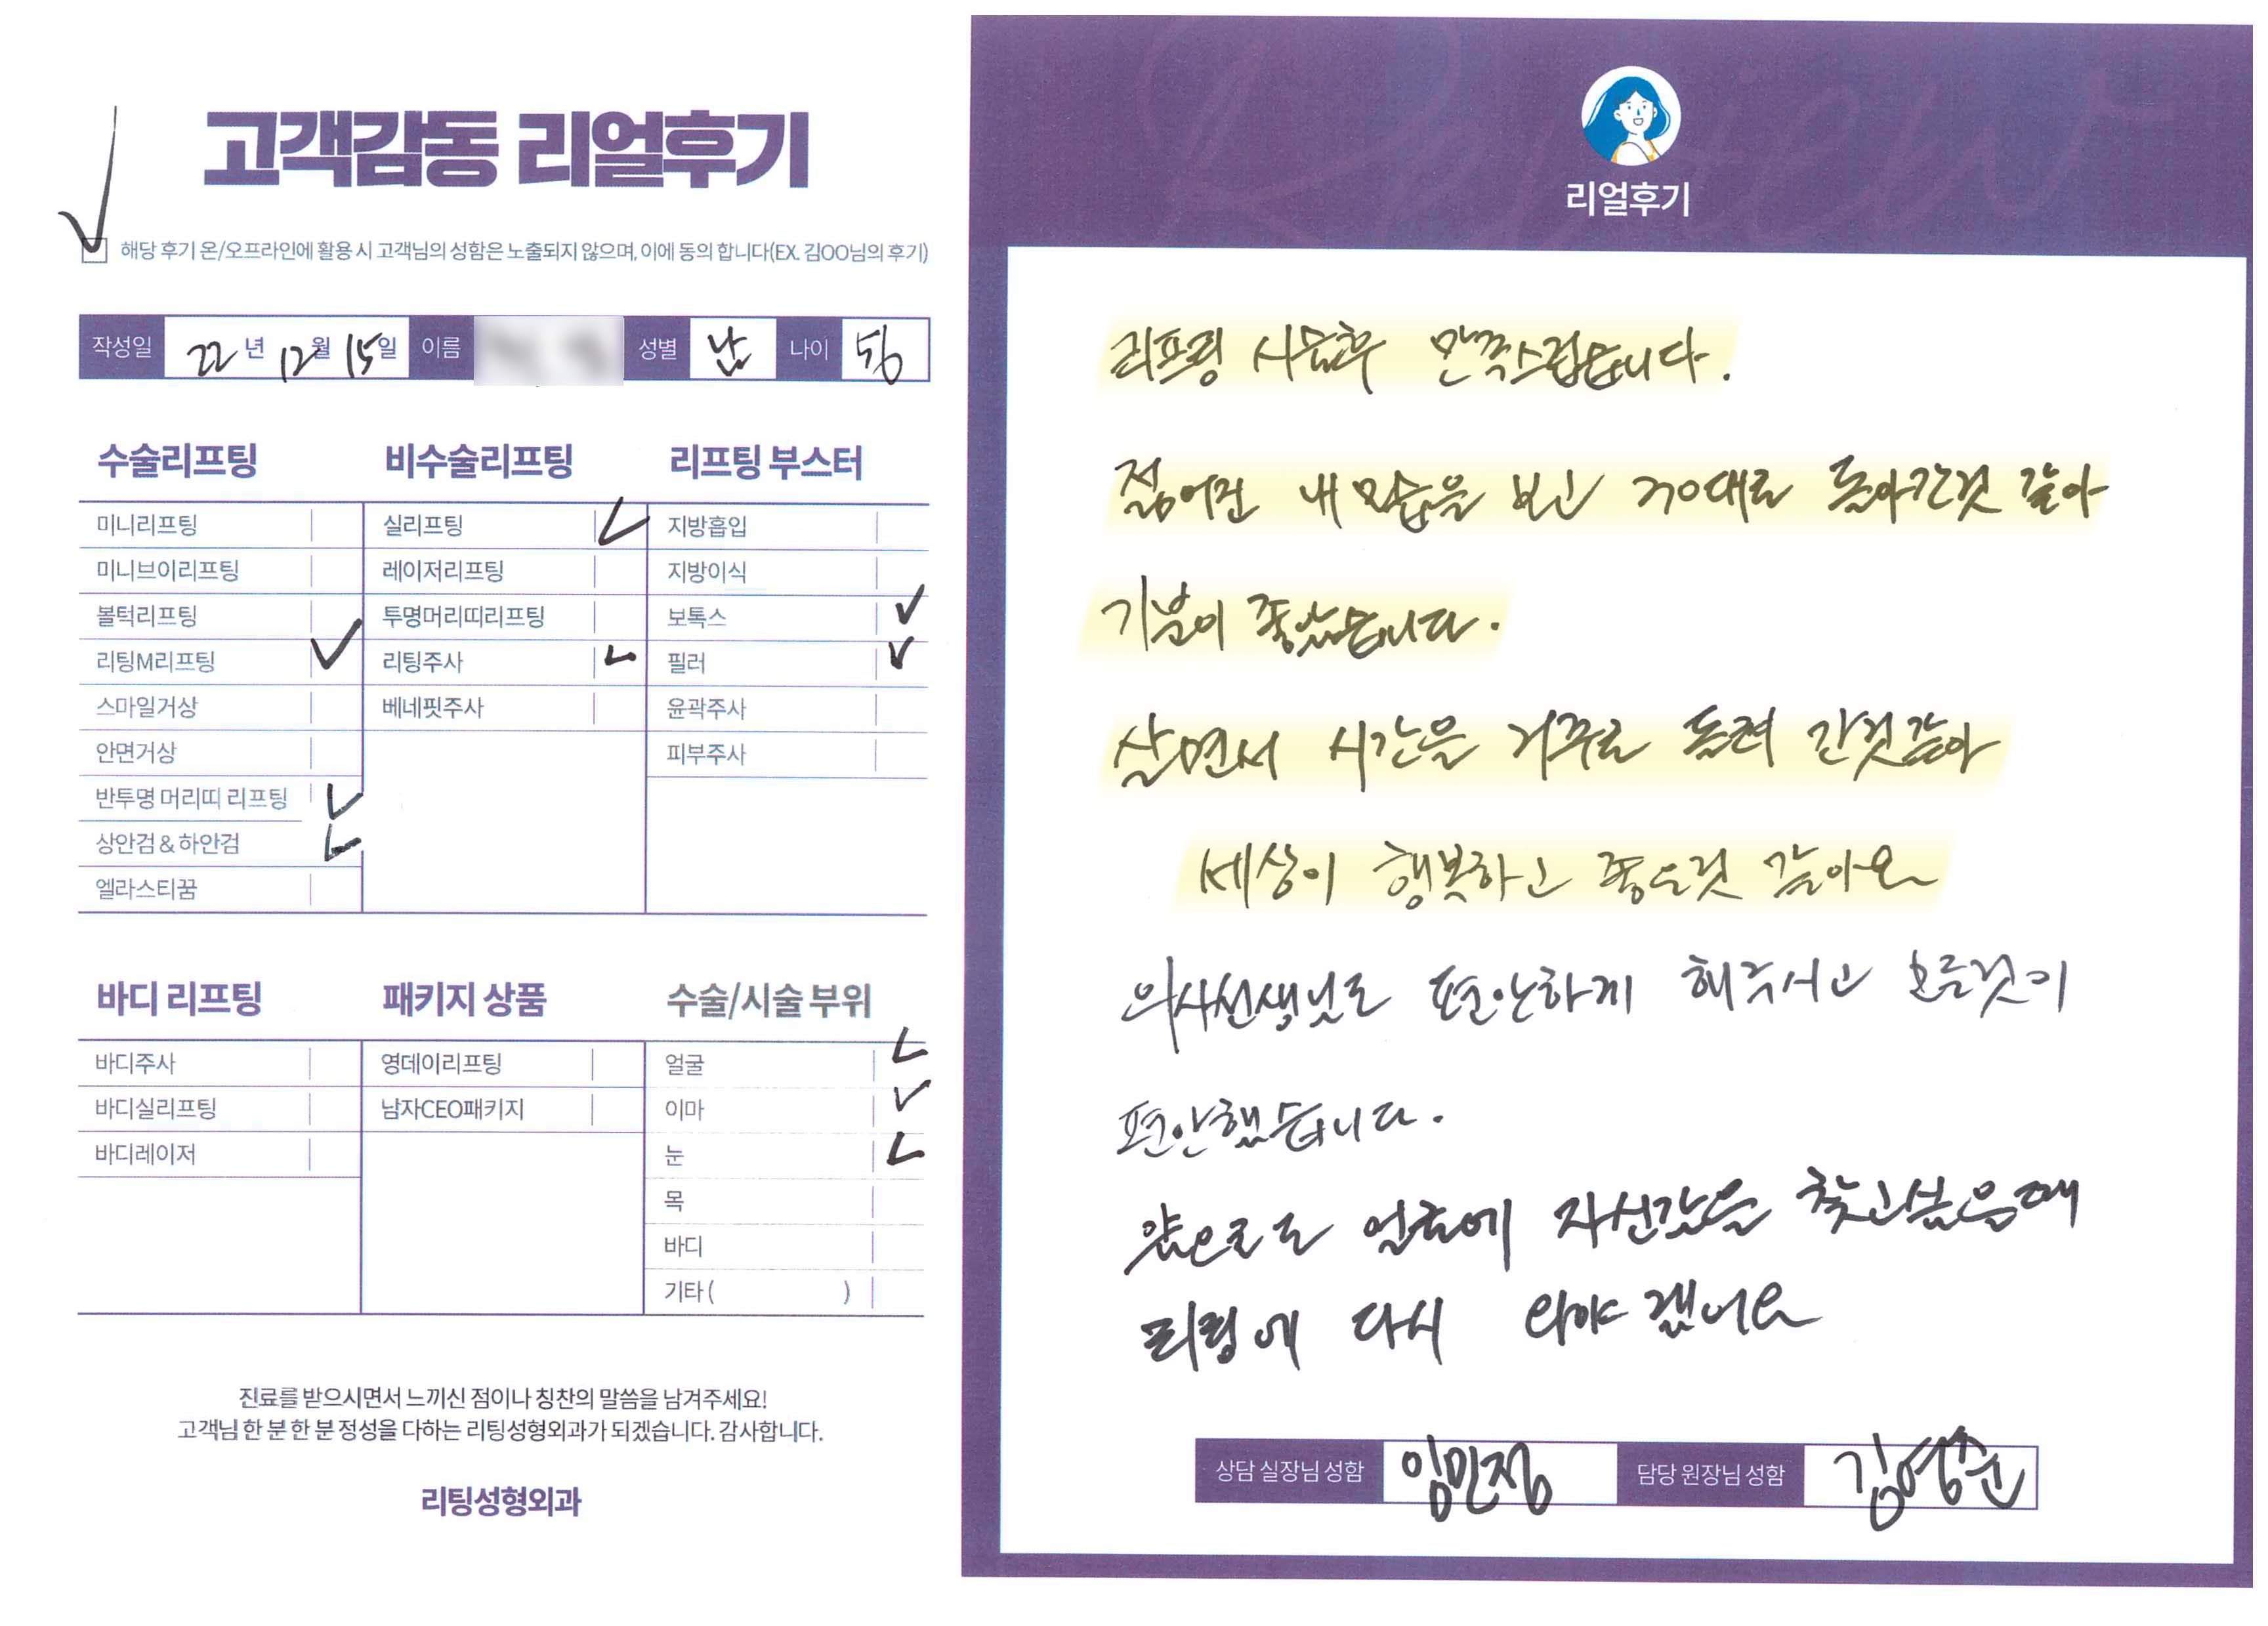 고객감동 리얼후기
해당 후기 온/오프라인에 활용 시 고객님의 성함은 노출되지 않으며, 이에 동의 합니다(EX. 김OO님의 후기)
작성일 22년 12월 15일 이름 성별 남 나이 56
수술리프팅
미니리프팅
미니브이리프팅
볼턱리프팅
리팅M리프팅
스마일거상
안면거상
반투명 머리띠 리프팅
상안검 & 하안검
엘라스티꿈
비수술리프팅
실리프팅
레이저리프팅
투명머리띠리프팅
리팅주사
베네핏주사
리프팅 부스터
지방흡입
지방이식
보톡스
필러
윤곽주사
피부주사
바디 리프팅
바디주사
바디실리프팅
바디레이저
패키지 상품
영데이리프팅
남자CEO패키지
수술/시술 부위
얼굴
이마
눈
목
바디
기타 ( )
진료를 받으시면서 느끼신 점이나 칭찬의 말씀을 남겨주세요!
고객님 한 분 한 분 정성을 다하는 리팅성형외과가 되겠습니다. 감사합니다.
리팅성형외과
Review
리얼후기
리프팅 시술후 만족스럽습니다.
젊어진 내 모습을 보고 30대로 돌아간것 같아
기분이 좋았습니다.
살면서 시간을 거꾸로 돌려 간것같아
세상이 행복하고 좋은것 같아요
의사선생님도 편안하게 해주시고 모든것이
편안했습니다.
앞으로도 얼굴에 자신감을 찾고싶을때
리팅에 다시 와야 겠어요
상담 실장님 성함 임민정 담당 원장님 성함 김영순